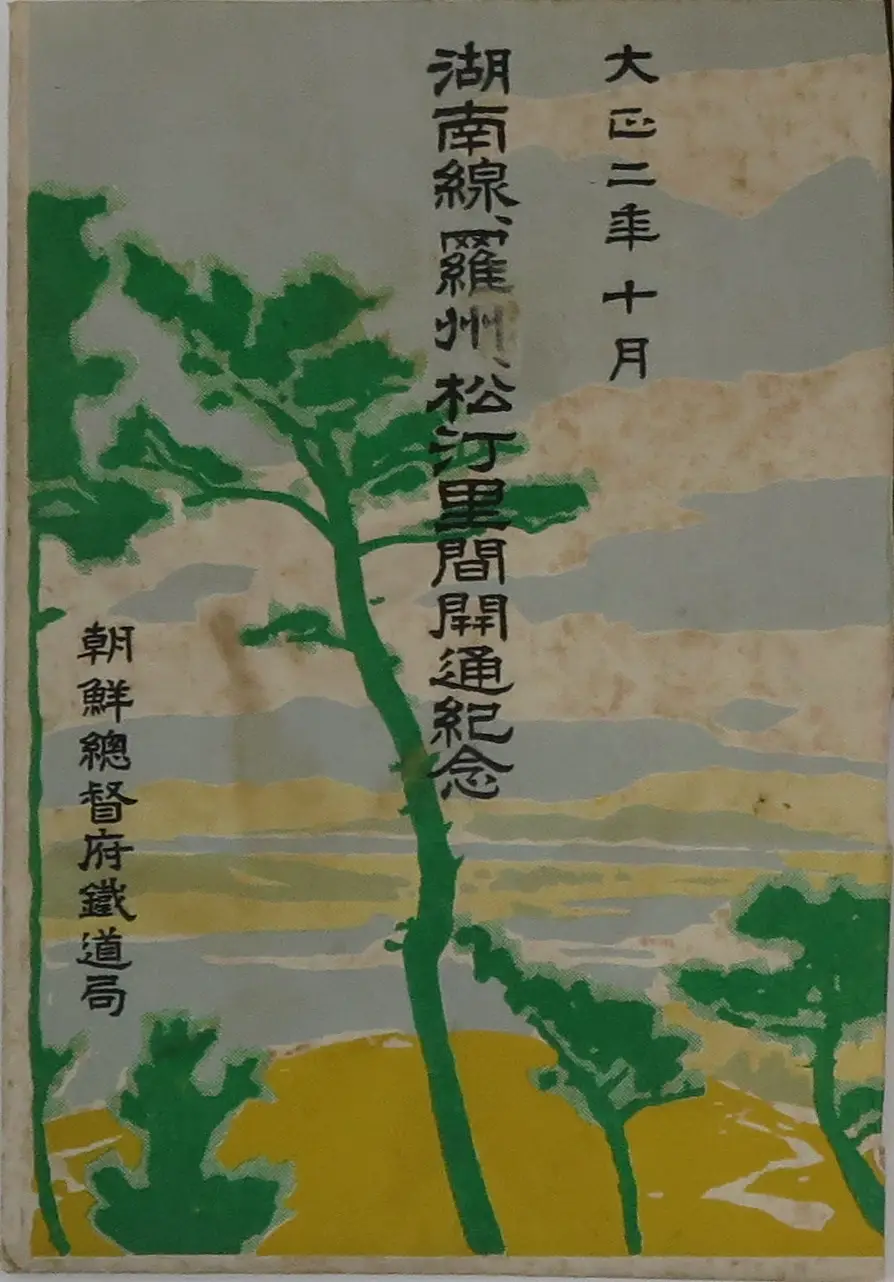 大正二年十月
湖南線、羅州、松汀里間開通紀念
朝鮮總督府鐵道局